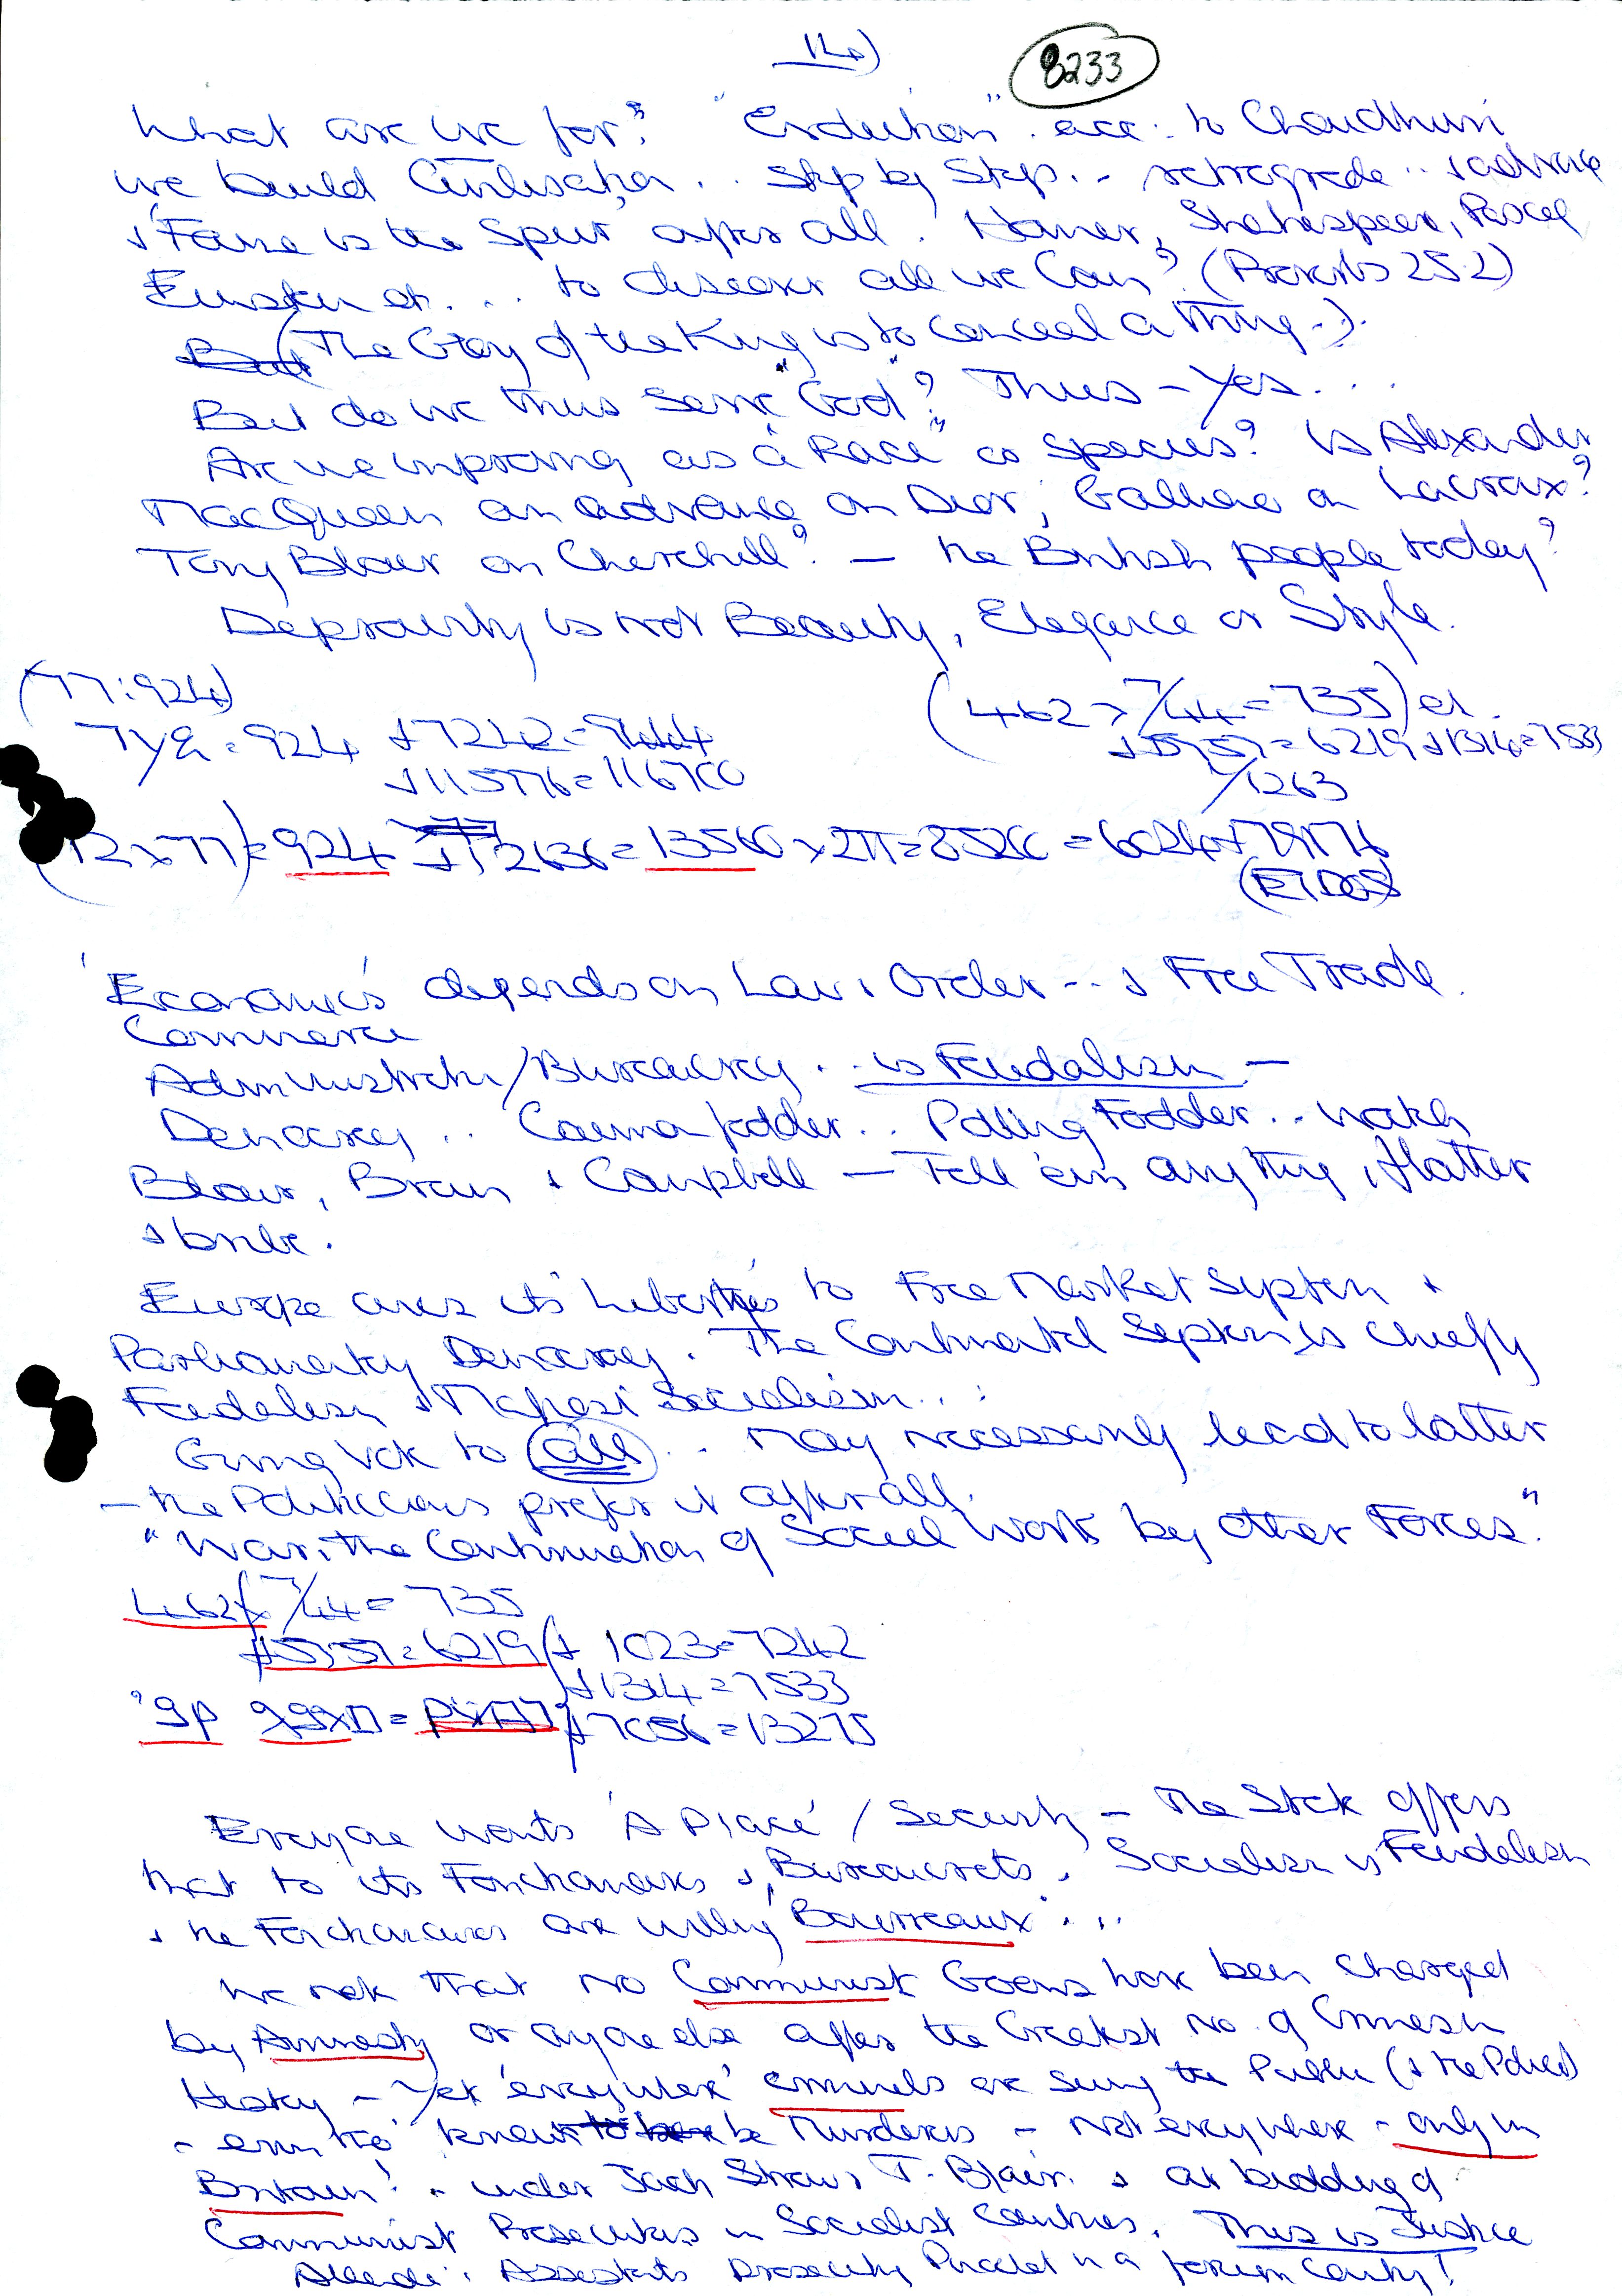 12)
8233
What are we for? "Evolution" acc. to Chaudhuri
we build Civilisation .. Step by Step .. retrograde .. & advance
& 'Fame is the Spur' after all. Homer, Shakespeare, Pascal
Einstein et. ... to discover all we can? (Proverbs 25.2)
(The Glory of the King is to conceal a thing ..).
But do we thus serve "God"? Thus - Yes ...
Are we improving as a "Race" as Species? Is Alexander
MacQueen an advance on Dior, Galliano on Lacroix?
Tony Blair on Churchill? — the British people today?
Depravity is not Beauty, Elegance or Style.
(77:924)
(462 > 7/44 = 735) et.
= 924
+ 115776 = 116700
+ 5757 = 6219 + 1314 = 7533
/1263
(12x77) = 924 + 12636 = 13560 x 2π = 8520 = 6024 + 79176
(EIDOS)
'Economics' depends on Law & Order -- & Free Trade.
Commerce
Administration/Bureaucracy .. is Feudalism —
Democracy .. Cannon fodder .. Polling Fodder .. watch
Blair, Brown & Campbell — Tell 'em anything, & flatter
& bribe.
Europe owes its Liberties to Free Market System &
Parliamentary Democracy. The Continental System is chiefly
Feudalism & Mafiosi Socialism ...
Giving Vote to all .. may necessarily lead to latter
— the Politicians prefer it after all.
"War, the Continuation of Social Work by other Forces."
462 x 7/44 = 735
+ 5757 = 6219 + 1023 = 7242
+ 1314 = 7533
+ 7056 = 13275
Everyone wants 'A Place' / Security — The State offers
that to its Fonctionaires & Bureaucrats, Socialism is Feudalism
& the Fonctionaires are willing 'Bourreaux' ...
We note that no Communist Goens have been charged
by Amnesty or anyone else after the Greatest No. of Crimes in
History — Yet 'everywhere' criminals are suing the Public (& the Police)
- even tho' known to be Murderers — not everywhere — only in
Britain! .. under Jack Straw, T. Blair. & at bidding of
Communist Prosecutors in Socialist Countries. This is Justice
Allende's Assistants prosecuting in a foreign Country!